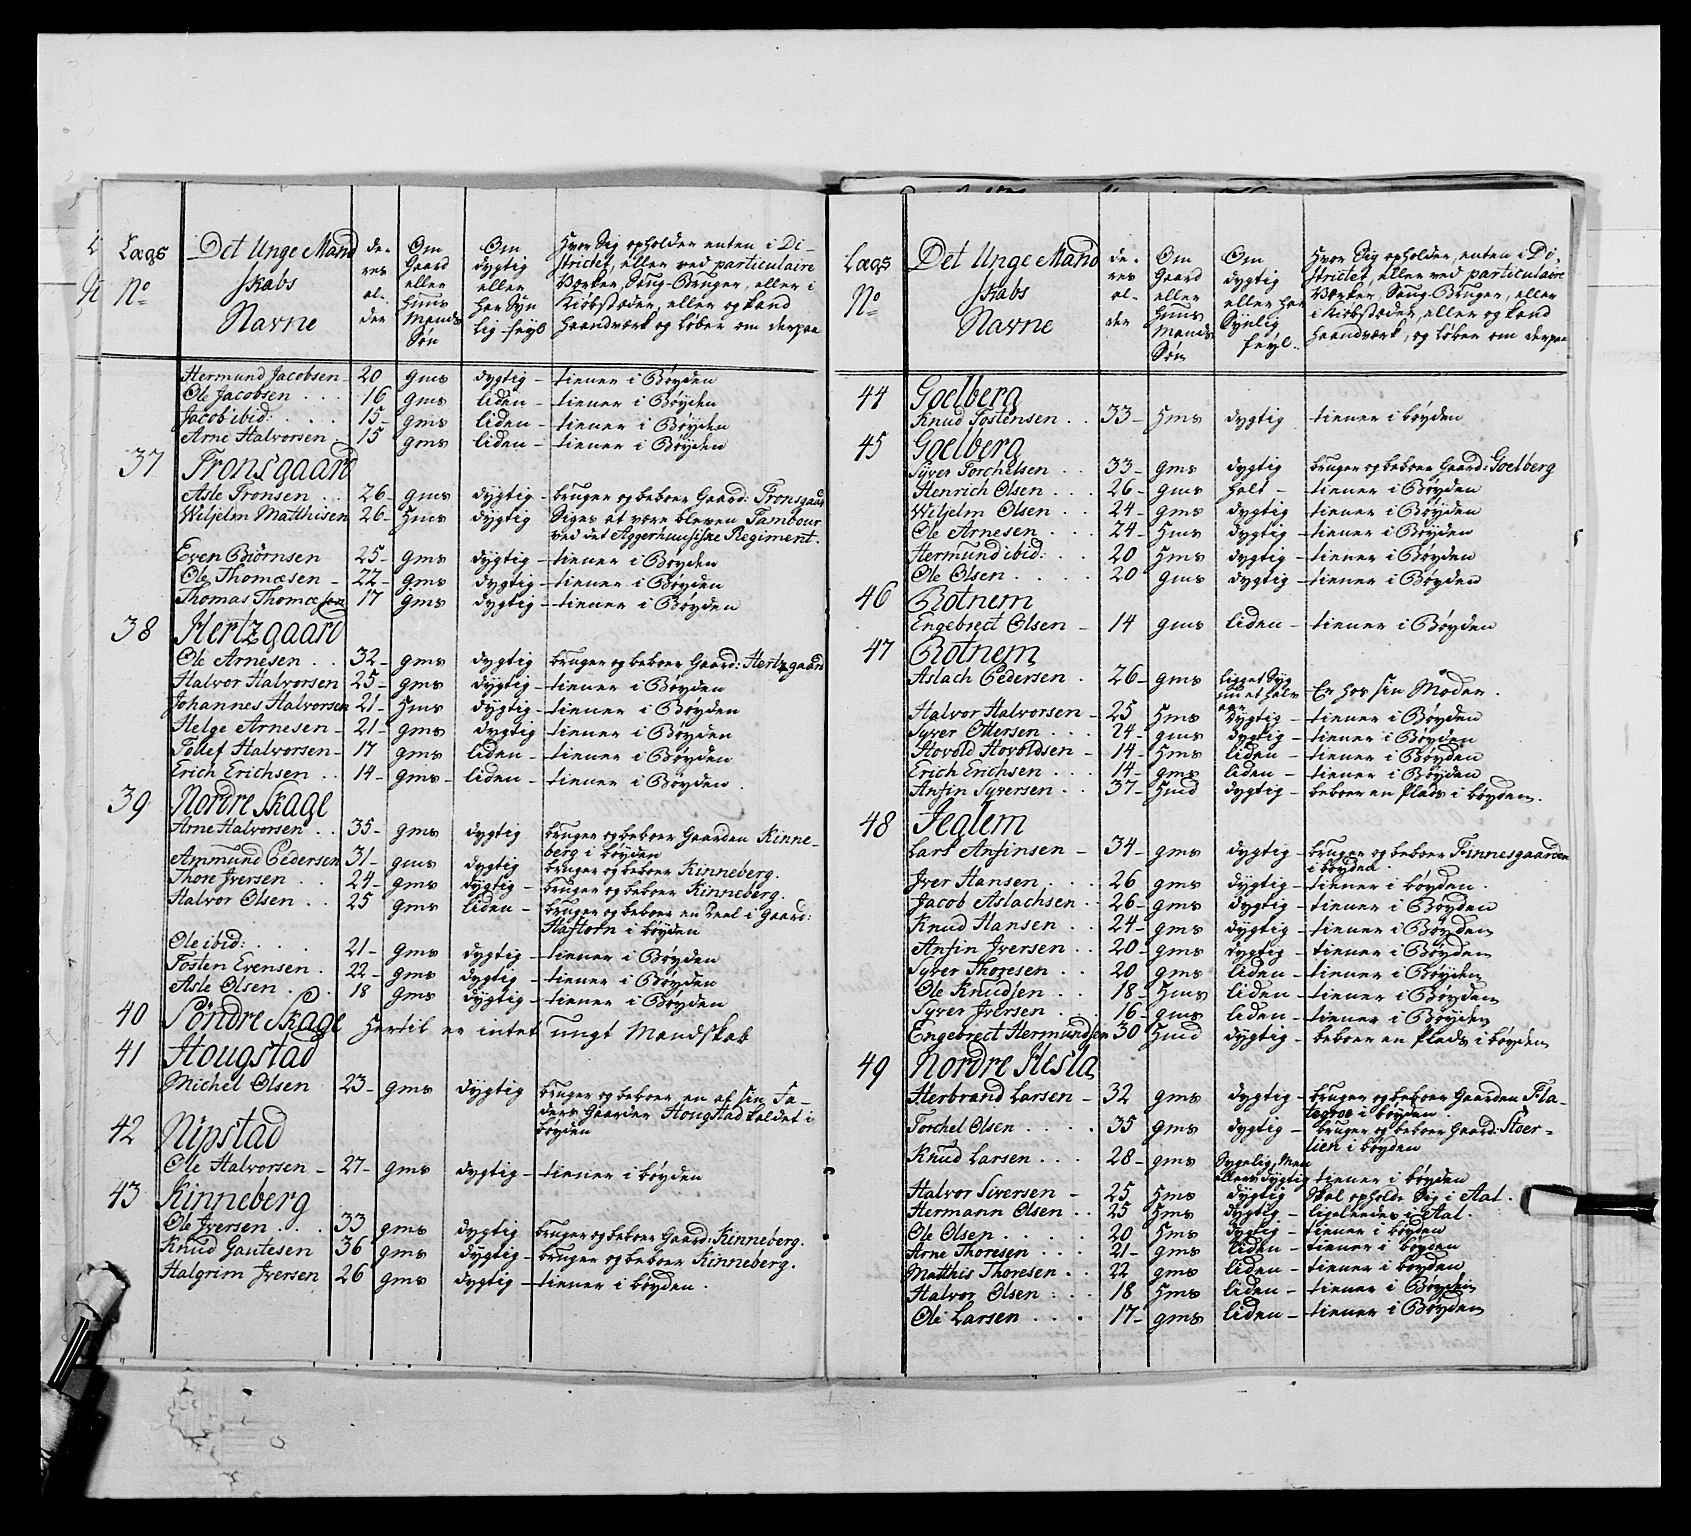 Lægs Det Unge Mand de- Om Om Hvor Sig opholder enten i Di-
skabs res Gaard dygtig strictet, eller ved particulaire
No Navne al- eller eller Værker, Saug-Bruger, eller i
der Huus har Syn Kiøbstæder, eller og kand
Mands lig-feyl haandværk og løber om derpaa
Søn
Hermund Jacobsen - 20 gms dygtig - tiener i Bøyden
Ole Jacobsen 16 gms liden - tiener i Bøyden
Jacob ibid: 15 - gms liden - tiener i Bøyden
Arne Halvorsen 15 gms liden - tiener i Bøyden
37 Fronsgaard
Asle Fronsen 26 - gms dygtig - bruger og beboer Gaard: Fronsgaar
Wiljelm Matthisen 26 - Hms dygtig Siges at være bleven Tambour
ved det Aggerhuusiske Regiment.
Even Biörnsen 25 - gms dygtig - tiener i Bøyden
Ole Thomæsen - 22 - gms dygtig - tiener i Bøyden
Thomas Thomæsen 17 gms dygtig - tiener i Bøyden
38 Hertzgaard
Ole Arnesen 32 - gms dygtig bruger og beboer Gaard: Hertzgaard
Halvor Halvorsen 25 - gms dygtig - tiener i Bøyden
Johannes Halvorsen 21 - Hms dygtig - tiener i Bøyden
Helge Arnesen - 21 - gms dygtig tiener i Bøyden
Tollef Halvorsen - 17 gms liden - tiener i Bøyden
Erich Erichsen 14 - gms - liden - tiener i Bøyden
39 Nordre Skage
Arne Halvorsen 35 - gms dygtig bruger og beboer Gaarden Kinne-
berg i bøyden
Ammund Pedersen 31 - gms dygtig bruger og beboer Kinneberg.
Thore Iversen 24 - gms dygtig - bruger og beboer Kinneberg.
Halvor Olsen 25 gms liden - bruger og beboer en Deel i Gaard:
Haftorn i bøyden
Ole ibid: 21 - gms dygtig - tiener i Bøyden
Tosten Evensen 22 - gms dygtig - tiener i Bøyden
Asle Olsen 18 gms dygtig - tiener i Bøyden
40 Söndre Skage Hertil er intet ungt Mandskab
41 Hougstad
Michel Olsen 23 - gms dygtig bruger og beboer en af sin Fa-
ders Gaarder Hougstad kaldet i
bøyden
42 Nipstad
Ole Halvorsen - 27 - gms dygtig - tiener i bøyden
43 Kinneberg
Ole Iversen 33 gms dygtig bruger og beboer Gaard: Kinneberg.
Knud Gautesen 36 gms dygtig - bruger og beboer Kinneberg.
Halgrim Iversen 26 gms dygtig - tiener i bøyden.
Lægs Det Unge Mand de- Om Om Hvor Sig opholder, enten i Di-
skabs res Gaard dygtig strictet, eller ved particulaire
No Navne al- eller eller har Værker, Saug-Bruger, eller
der Huus Synlig i Kiøbstæder, eller og kand
Mands feyl. haandværk, og løber om derpaa
Søn
44 Goelberg
Knud Tostensen 33 - Hms dygtig tiener i bøyden
45 Goelberg
Syver Torchelsen 33 - gms dygtig bruger og beboer Gaard: Goelberg
Henrich Olsen 26 - gms halt - tiener i Bøyden
Wiljelm Olsen 24 - gms dygtig tiener i Bøyden
Ole Arnesen 24 - Hms dygtig - tiener i Bøyden
Hermund ibid: 20 Hms dygtig - tiener i Bøyden
Ole Olsen 20 gms dygtig - tiener i Bøyden
46 Rotnem
Engebrect Olsen - 14 gms liden - tiener i Bøyden
47 Rotnem
Aslach Pedersen 26 - gms Ligget Syg
Er hos sin Moder.
aar
Halvor Halvorsen - 25 Hms dygtig - tiener i Bøyden
Syver Ottersen 24 - gms dygtig - tiener i Bøyden
Hovold Hovoldsen - 14 - Hms liden - tiener i Bøyden
Erich Erichsen 14 - gms liden - tiener i Bøyden
Ansin Syversen 37 - Hmd dygtig - beboer en Plads i bøyden.
48 Jeglem
Lars Ansinsen - 34 - gms dygtig - bruger og beboer Finnesgaarden
i bøyden
Iver Hansen 26 gms dygtig - tiener i bøyden.
Jacob Aslachsen 26 - gms dygtig - tiener i Bøyden
Knud Hansen 24 - gms dygtig - tiener i Bøyden
Ansin Iversen 20 - gms dygtig - tiener i Bøyden
Syver Thoresen 20 gms liden - tiener i Bøyden
Ole Knudsen 18 - Hms liden - tiener i Bøyden
Syver Iversen 16 - gms liden - tiener i Bøyden
Engebrect Hermundsen 30 Hmd dygtig - beboer en Plads i bøyden
49 Nordre Hesla
Herbrand Larsen - 32 gms dygtig - bruger og beboer Gaarden Fla-
tegroe i bøyden.
Torchel Olsen 35 gms dygtig - bruger og beboer Gaard: Stoer-
lien i bøyden
Knud Larsen 28 - gms Sygelig, Men
ellers dygtig tiener i bøyden
Halvor Siversen - 25 Hms dygtig Skal opholde Sig i Aal.
Hermann Olsen 25 Hms dygtig - ligeleedes i Aal.
Ole Olsen 20 Hms dygtig - tiener i bøyden
Arne Thoresen 21 - gms liden - tiener i bøyden
Matthis Thoresen 22 gms liden - tiener i bøyden
Halvor Olsen 18 Hms liden - tiener i Bøyden
Ole Larsen 17 - gms liden - tiener i Bøyden